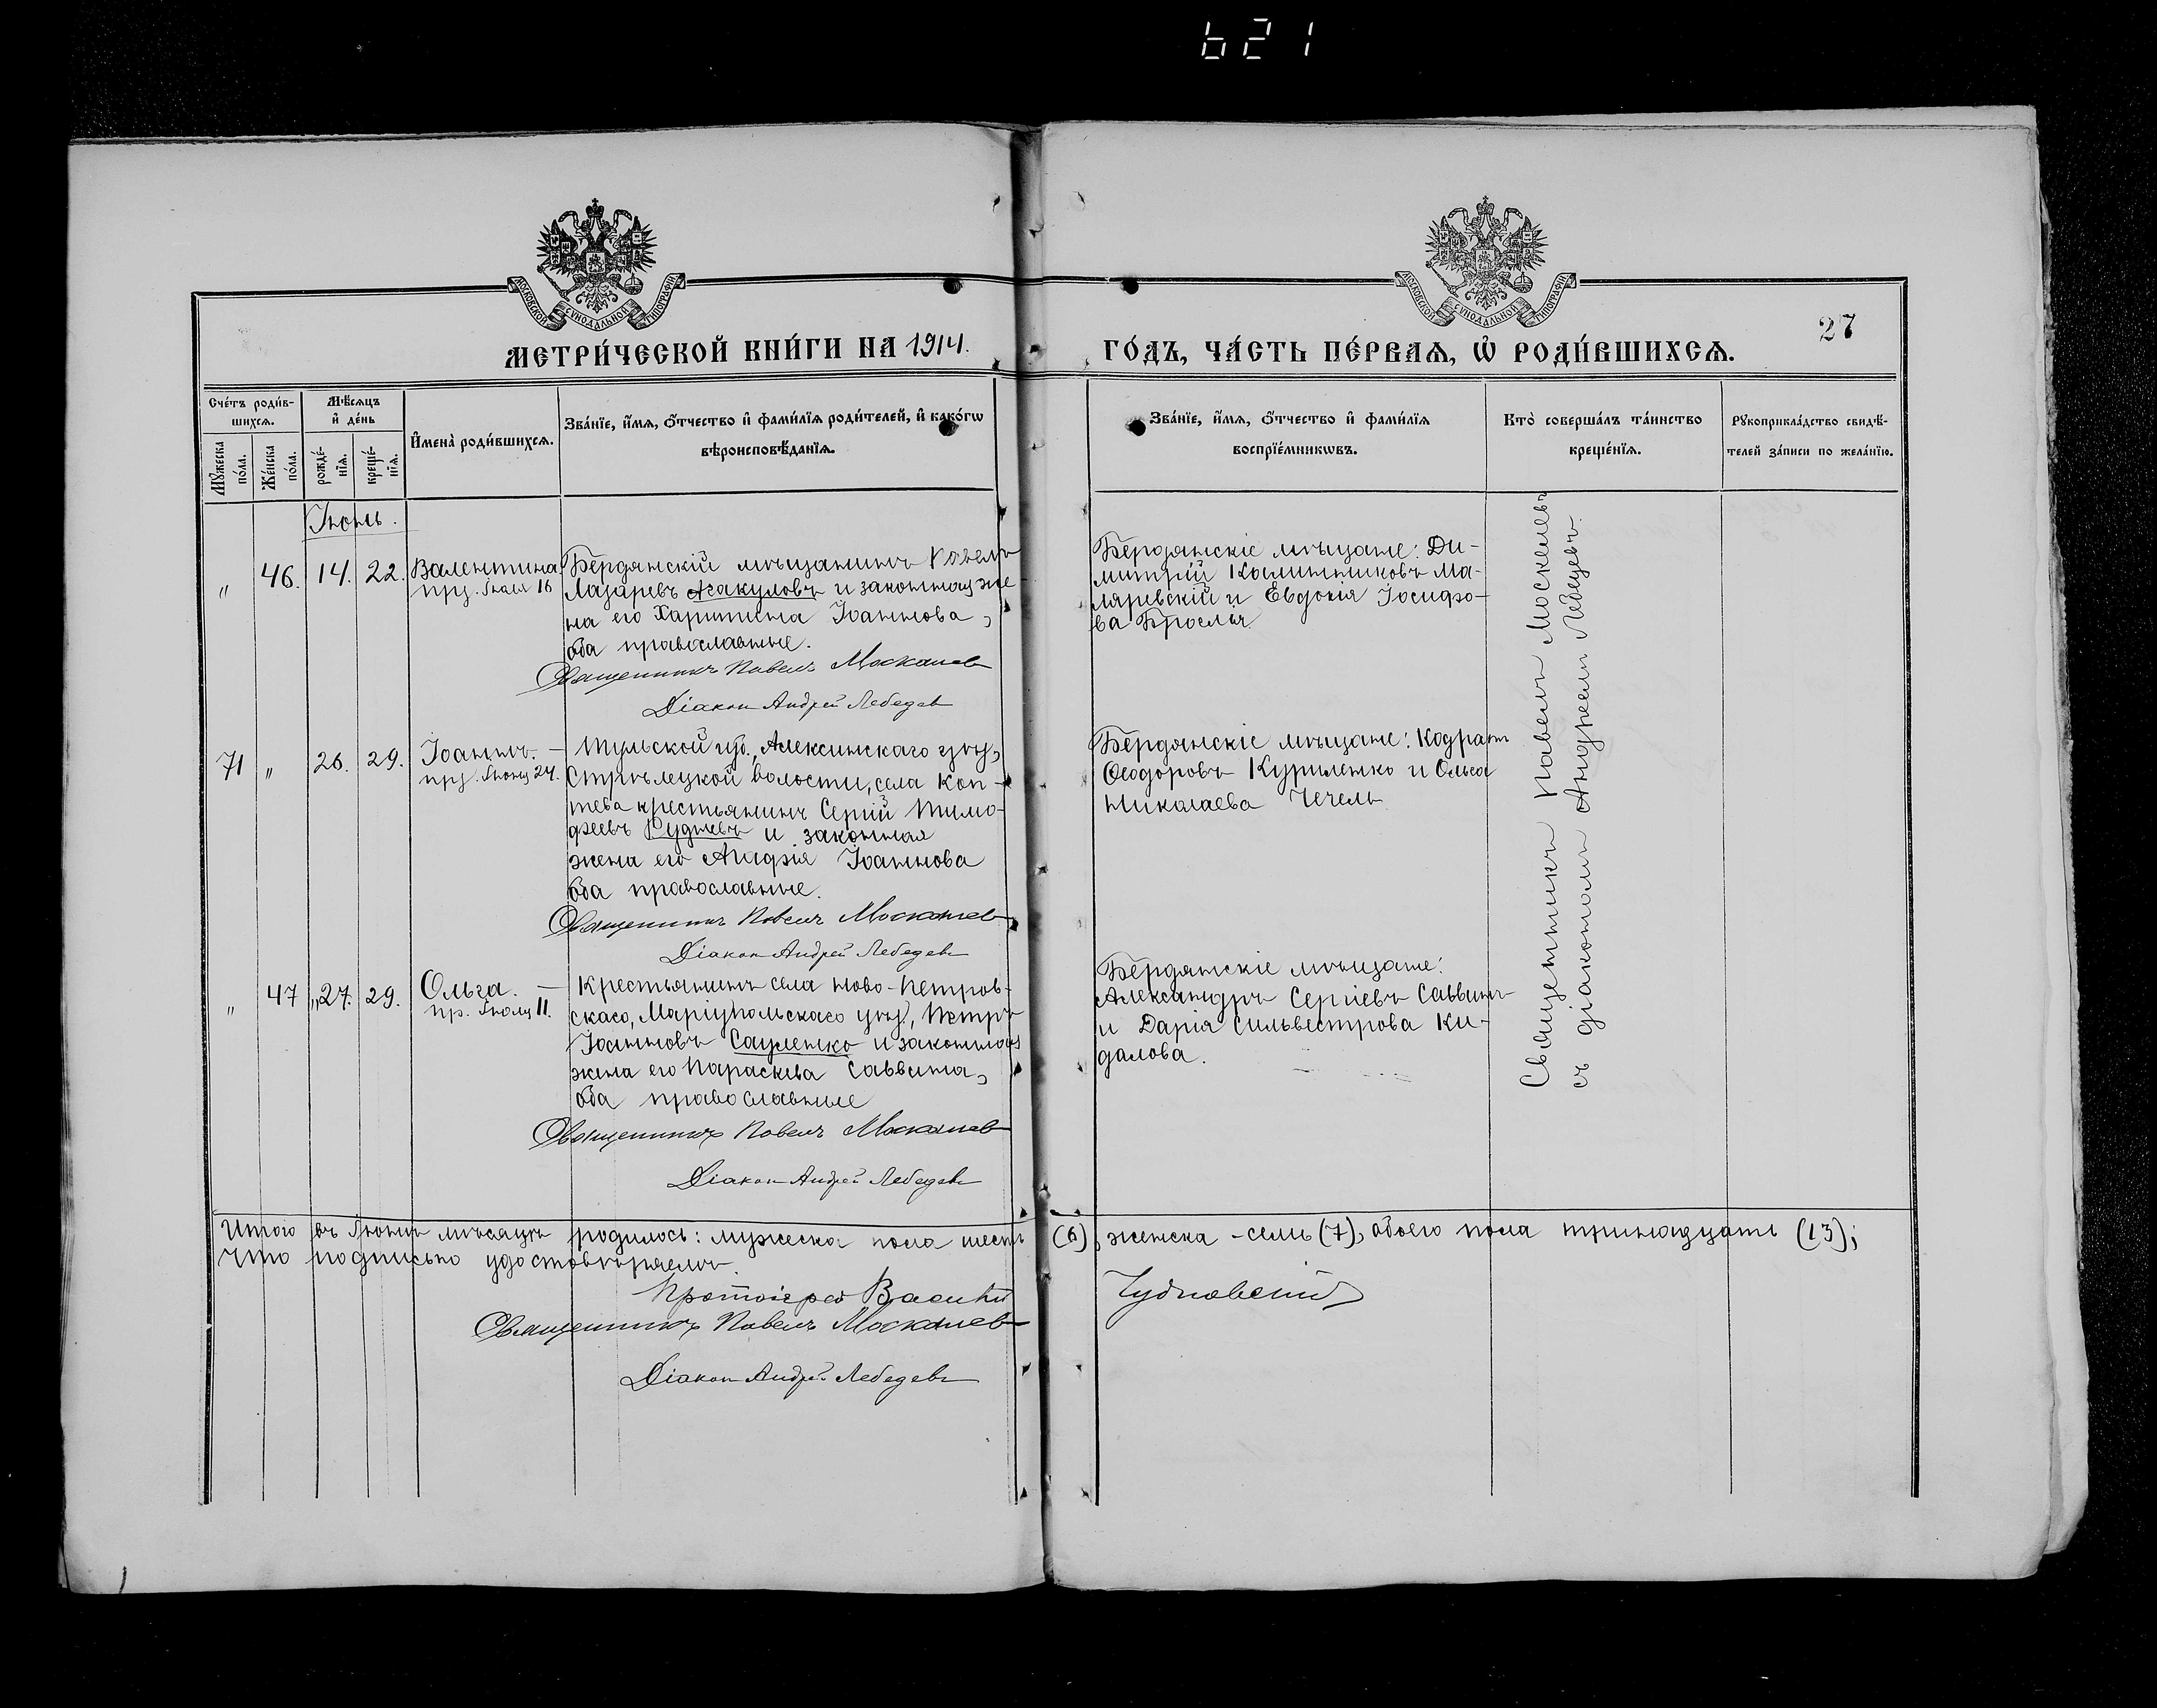 621
МОСКОВСКОЙ СѴНОДАЛЬНОЙ ТИПОГРАФІИ
МОСКОВСКОЙ СѴНОДАЛЬНОЙ ТИПОГРАФІИ
МЕТРИ́ЧЕСКОЙ КНИ́ГИ НА 1914.
ГО́ДЪ, ЧА́СТЬ ПЕ́РВАѦ, Ѡ҆ РОДИ́ВШИХСѦ.
27
Сче́тъ роди́в-
шихсѧ.
Мꙋ́жеска
по́ла.
Же́нска
по́ла.
Мѣ́сѧцъ
и҆ де́нь
рожде́-
нїѧ.
креще́-
нїѧ.
И҆мена̀ роди́вшихсѧ.
Зва́нїе, и҆́мѧ, ѻ҆́тчество и҆ фами́лїѧ роди́телей, и҆ како́гѡ
вѣроисповѣ́данїѧ.
Зва́нїе, и҆́мѧ, ѻ҆́тчество и҆ фами́лїѧ
воспрїе́мникѡвъ.
Кто̀ соверша́лъ та́инство
креще́нїѧ.
Рꙋкоприкла́дство свидѣ́-
телей за́писи по жела́нїю.
Іюнь.
" 46. 14. 22. Валентина
прз. Іюля 16
Бердянскій мѣщанинъ Павелъ
Лазаревъ Агакуловъ и законная же
на его Харитина Іоаннова,
оба православные.
Священникъ Павелъ Москалев
Діакон Андрей Лебедев
Бердянскіе мѣщане: Ди-
митрій Калинниковъ Ма-
ляревскій и Евдокія Іосифо-
ва
71 " 26. 29. Іоаннъ. –
прз. Іюня 24.
Тульской губ., Алексинскаго уѣз,
Стрѣлецкой волости, села Коп-
тева крестьянинъ Сергій Тимо-
феевъ Рудневъ и законная
жена его Агафія Іоаннова
оба православные.
Священникъ Павелъ Москалев
Діакон Андрей Лебедев
Бердянскіе мѣщане: Кодрат
Ѳеодоровъ Куриленко и Ольга
Николаева Чечель
" 47 "27. 29. Ольга. –
пр. Іюля 11.
Крестьянинъ села Ново-Петров-
скаго, Маріупольскаго уѣз, Петръ
Іоанновъ Сауленко и законная
жена его Параскева Саввина,
оба православные
Священникъ Павелъ Москалев
Діакон Андрей Лебедев
Бердянскіе мѣщане:
Александръ Сергіевъ Саввинъ
и Дарія Сильвестрова Ки-
далова.
Священникъ Павелъ Москалевъ
съ діакономъ Андреемъ Лебедевъ.
Итого въ Іюнѣ мѣсяцѣ родилось: мужеска пола шесть (6), женска - семь (7), обоего пола тринадцать (13);
что подписью удостовѣряемъ.
Протоіерей Василій Чудновскій
Священникъ Павелъ Москалев
Діакон Андрей Лебедев